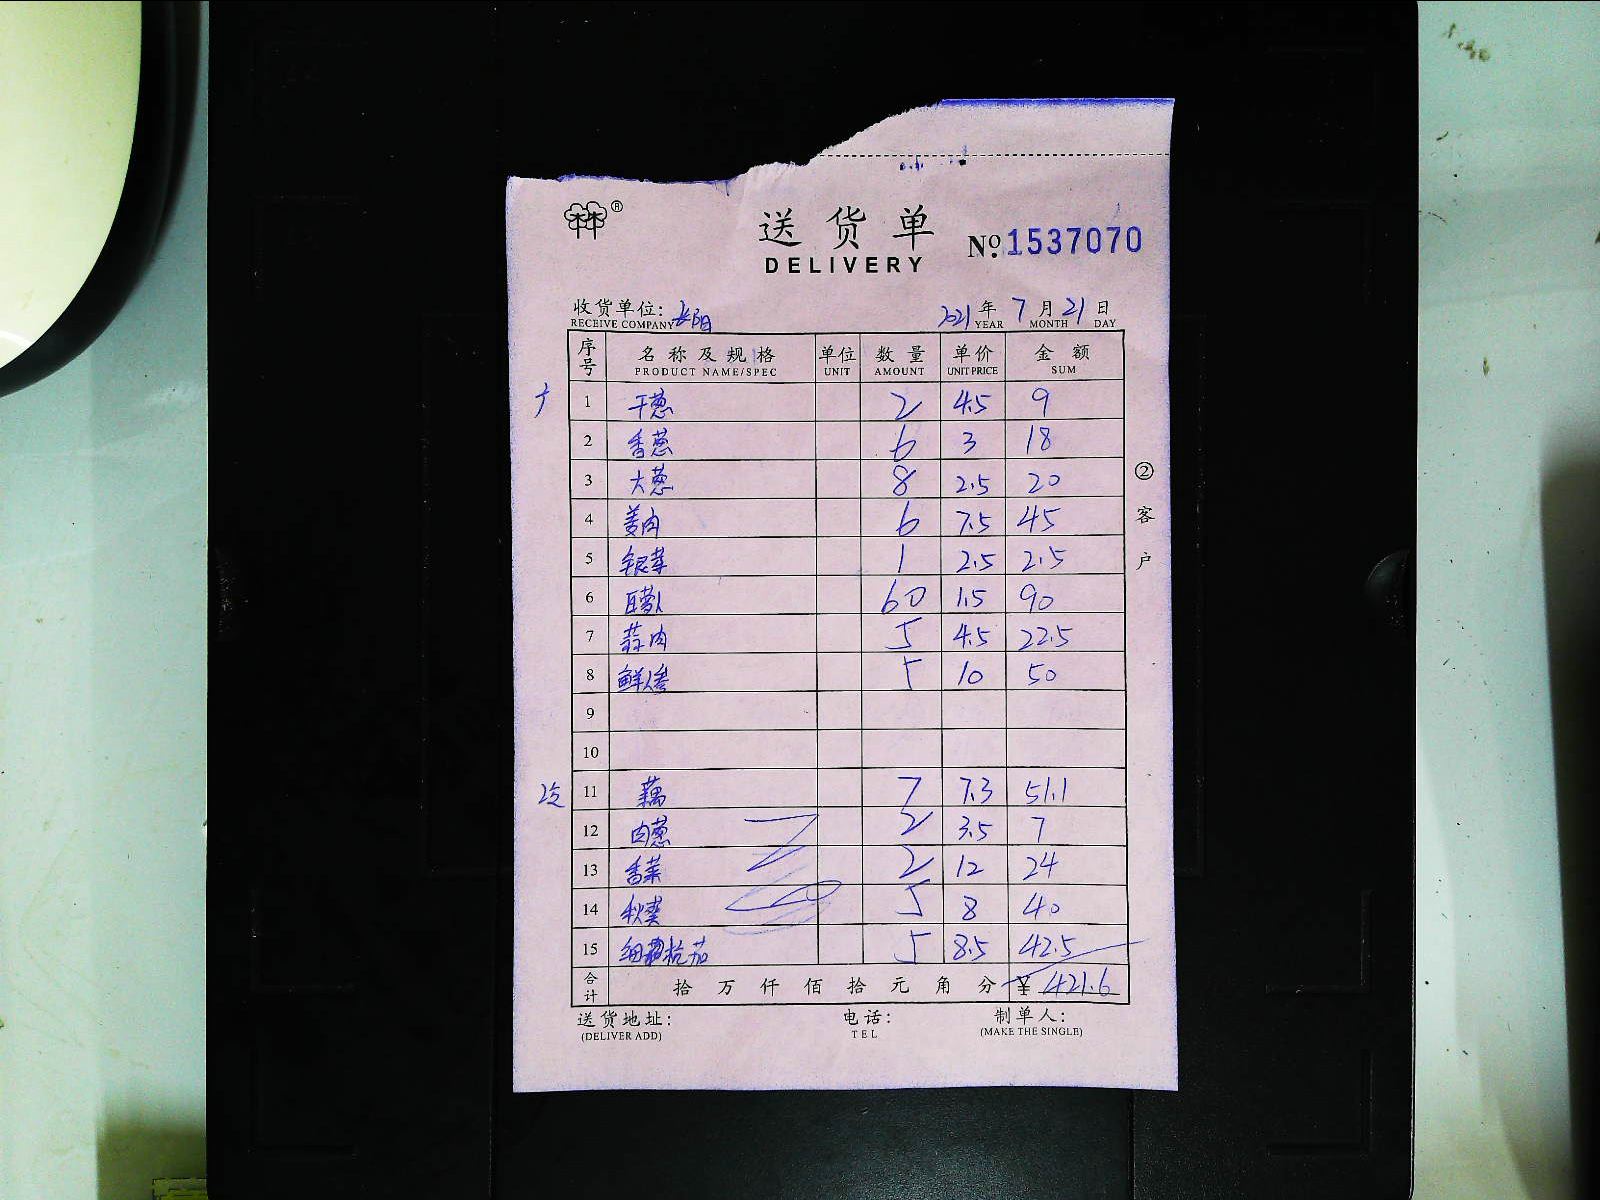 ®
送货单
DELIVERY
No. 1537070
收货单位: 2021年7月21日
RECEIVE COMPANY YEAR MONTH DAY
序号 名称及规格 单位 数量 单价 金额
PRODUCT NAME/SPEC UNIT AMOUNT UNIT PRICE SUM
1 干葱 2 4.5 9
2 香葱 6 3 18
3 大葱 8 2.5 20
4 姜肉 6 7.5 45
5 银芽 1 2.5 2.5
6 60 1.5 90
7 蒜肉 5 4.5 22.5
8 鲜人参 5 10 50
9
10
11 藕 7 7.3 51.1
12 肉葱 2 3.5 7
13 香菜 2 12 24
14 秋葵 5 8 40
15 5 8.5 42.5
合计 拾万仟佰拾元角分 ¥ 421.6
送货地址: 电话: 制单人:
(DELIVER ADD) TEL (MAKE THE SINGLE)
②客户